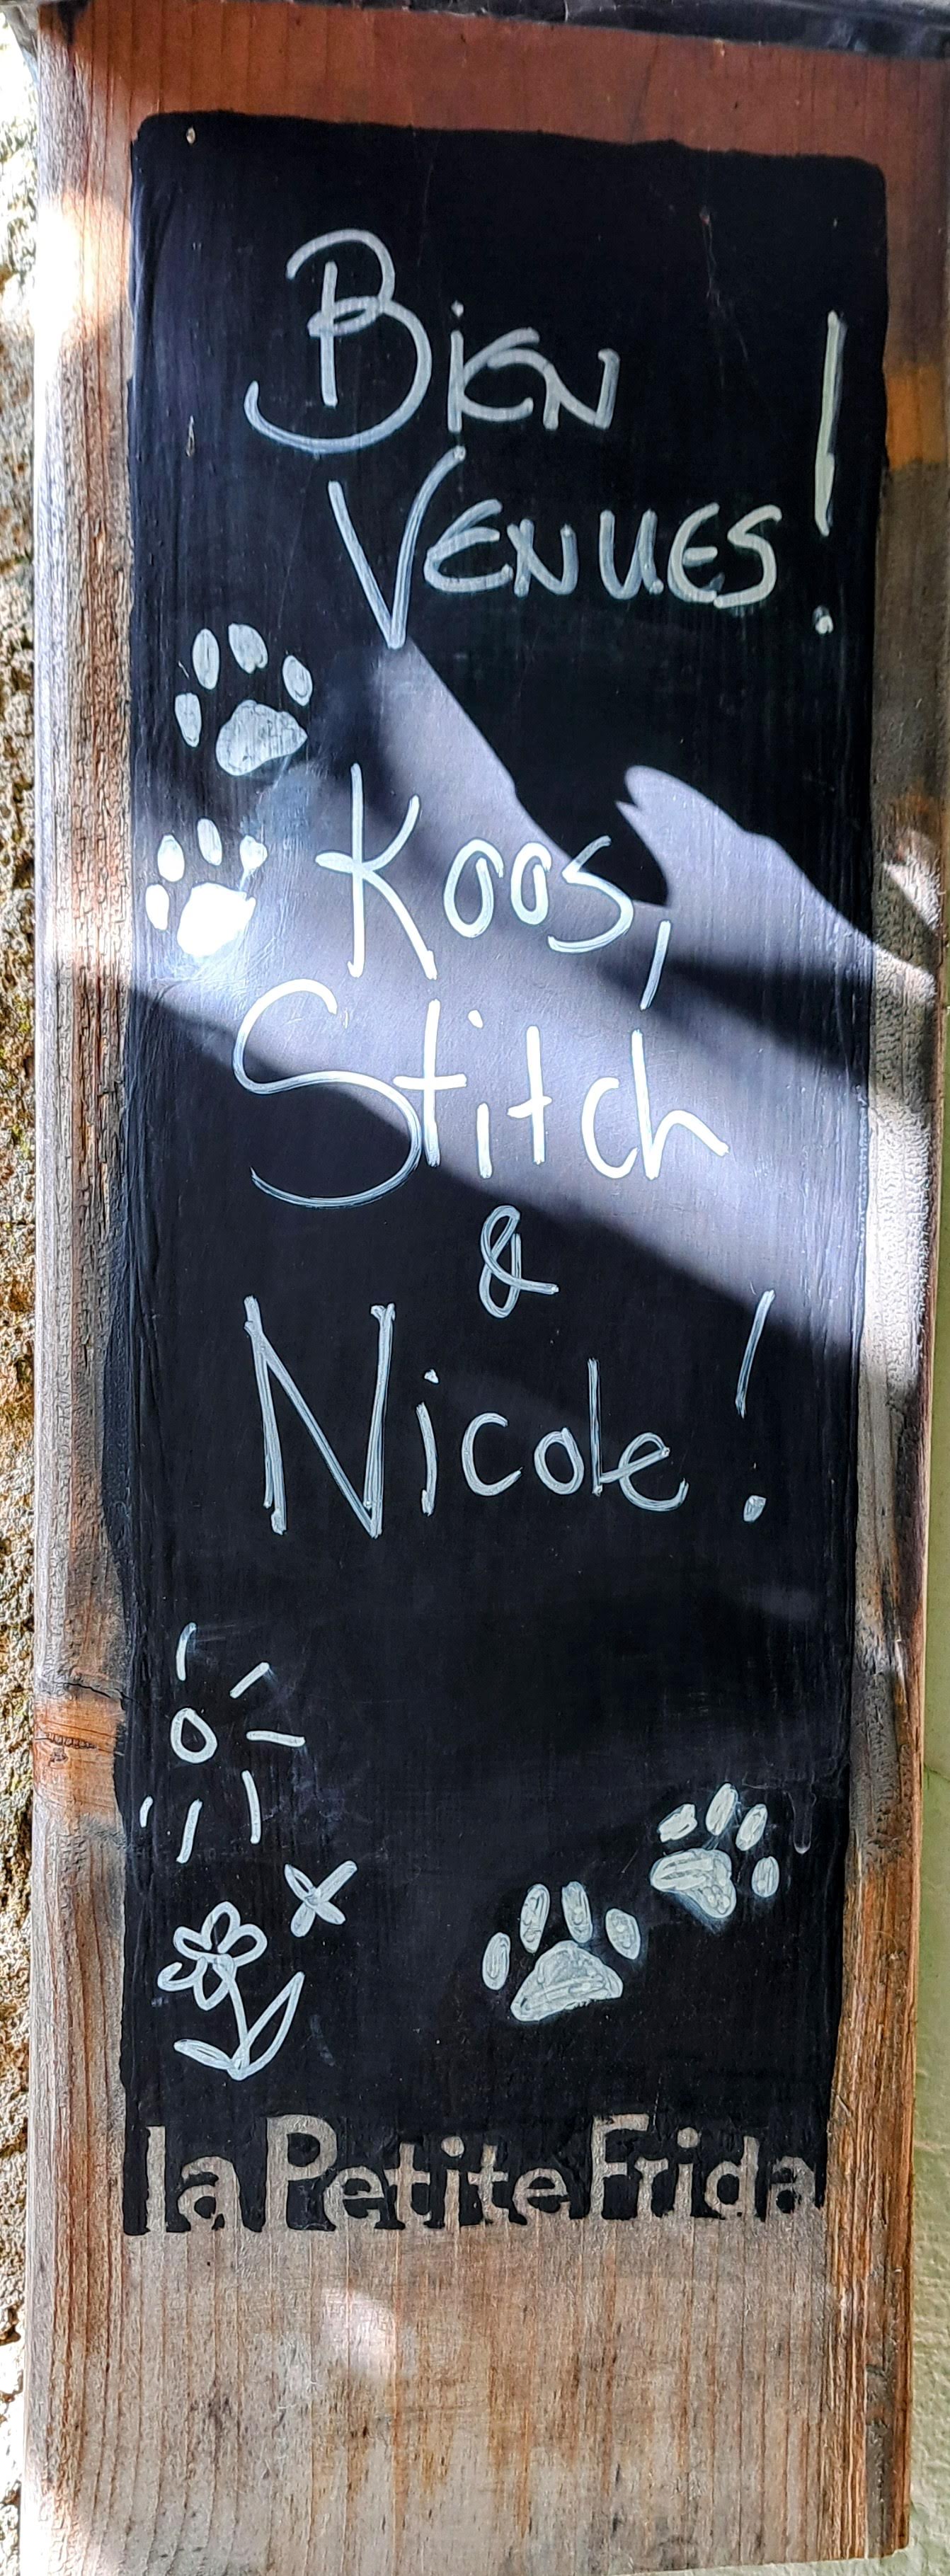 Bien
Venues!
Koos,
Stitch
&
Nicole!
la Petite Frida